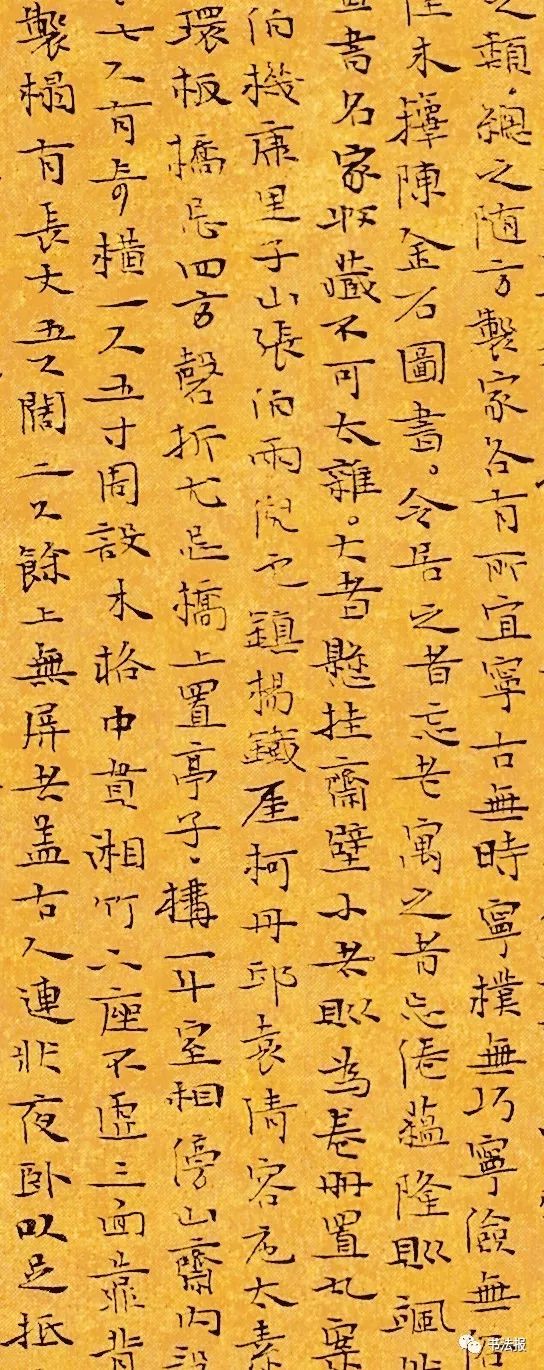 之類，總之随方製象各有所宜寧古無時寧樸無巧寧儉無
佳木籜陳金石圖書。令居之者忘老寓之者忘倦蘊隆則颯
書名家收藏不可太雜。大者懸挂齋壁小者則為卷冊置几案
伯機康里子山張伯雨倪元鎮楊鐵厓柯丹邱袁清容危太素
環板橋忌四方磬折尤忌橋上置亭子。構一斗室相傍山齋内設
七尺有奇横一尺五寸周設木格中貫湘竹下座不虚三面靠背
製榻有長丈五尺闊二尺餘上無屏者盖古人連牀夜卧以足抵
书法报